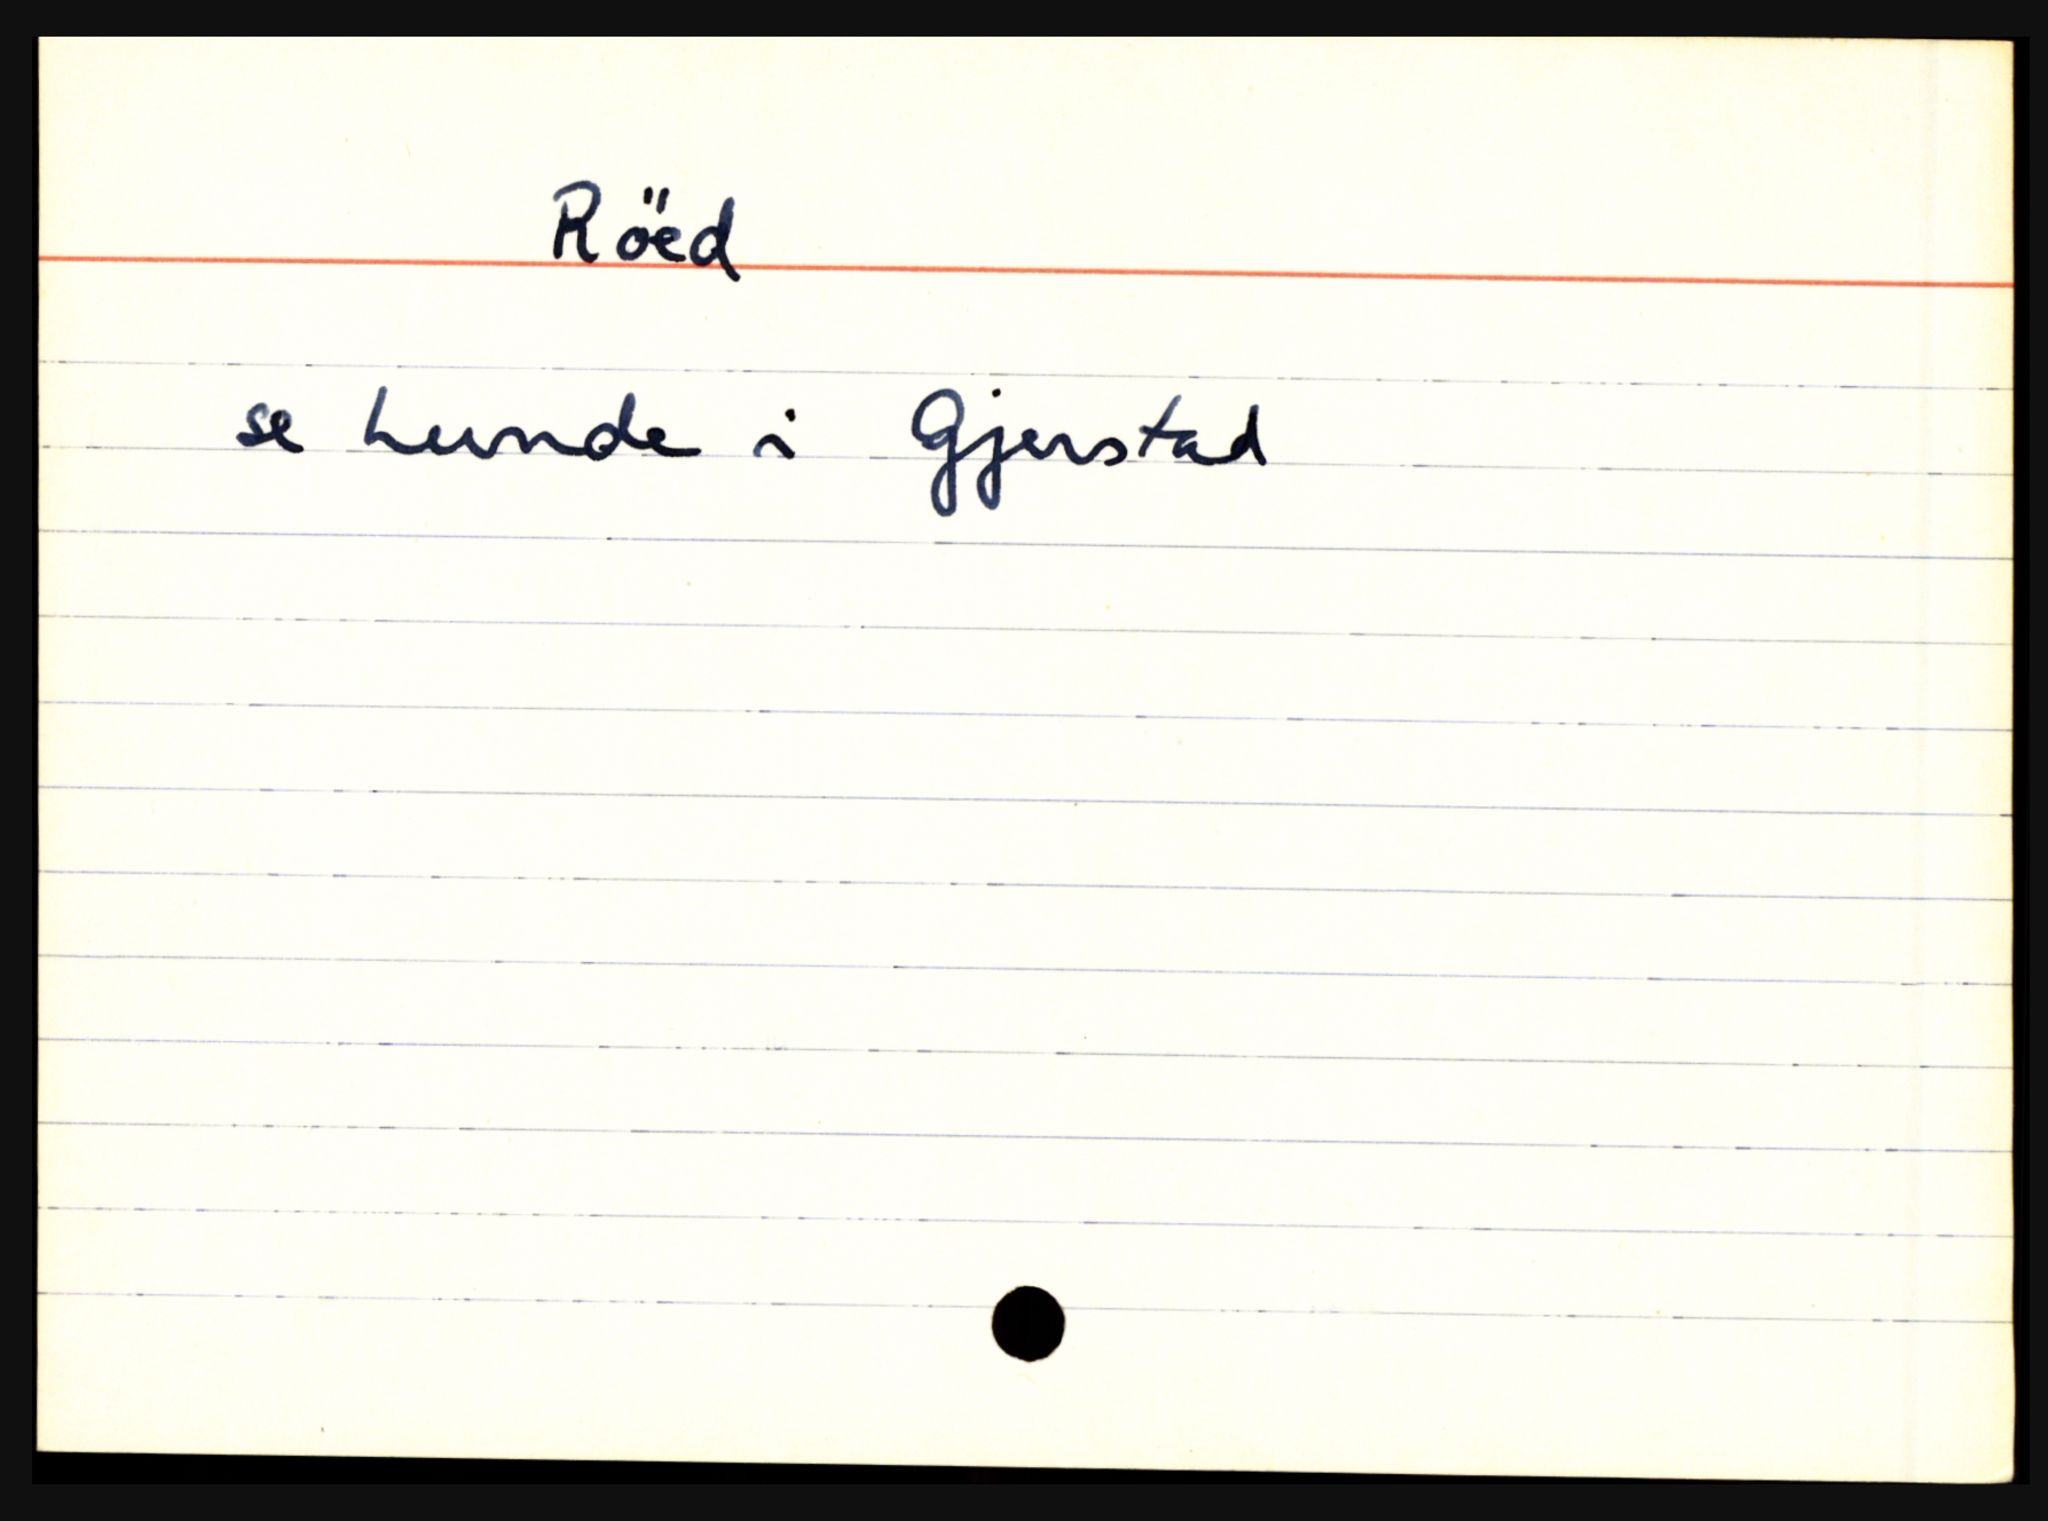 Röed
se Lunde i Gjerstad